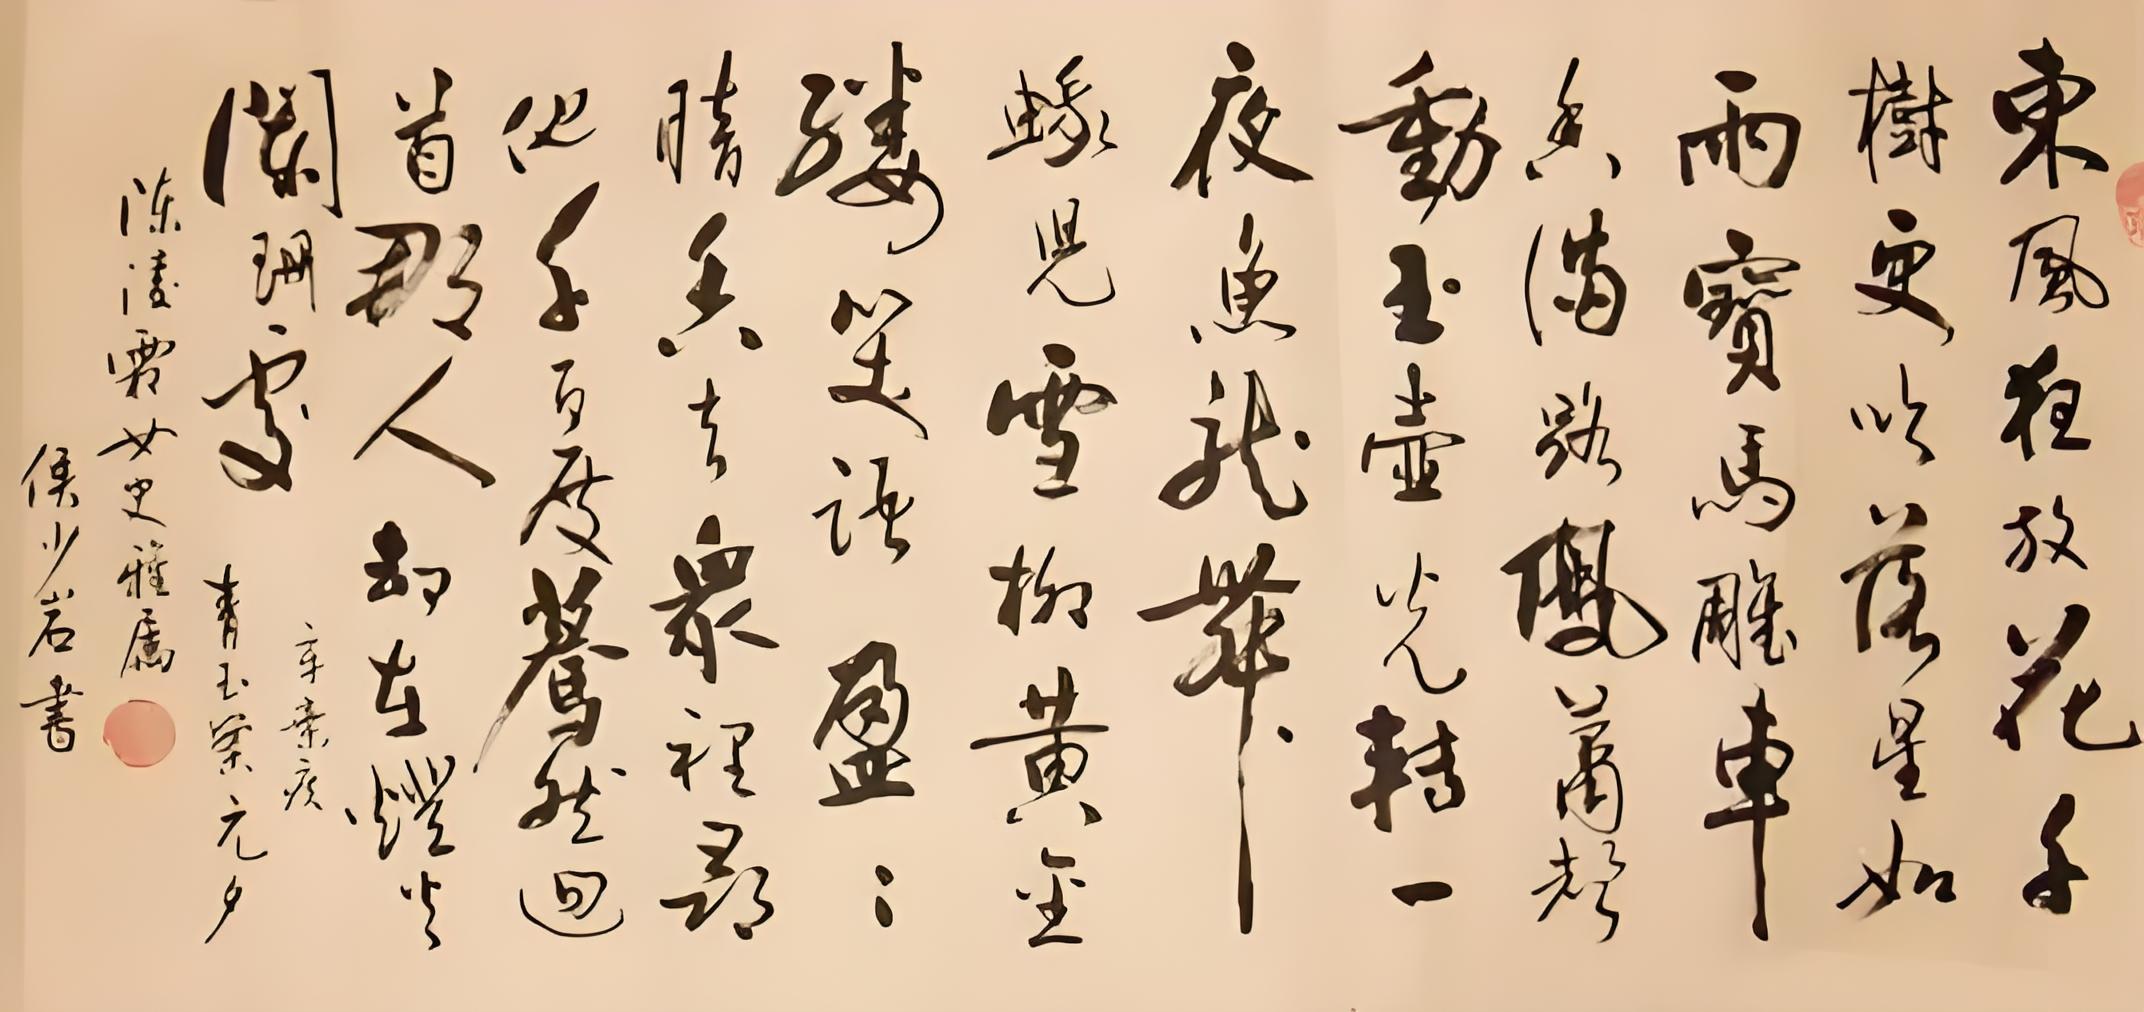 東風狂放花千
樹更吹落星如
雨寶馬雕車
香滿路鳳簫聲
動玉壺光轉一
夜魚龍舞
蛾兒雪柳黃金
縷笑語盈〻
暗香去衆裡尋
他千百度驀然迴
首那人却在燈火
闌珊處
辛棄疾
青玉案元夕
陈凌霞女史雅属
侯少岩書